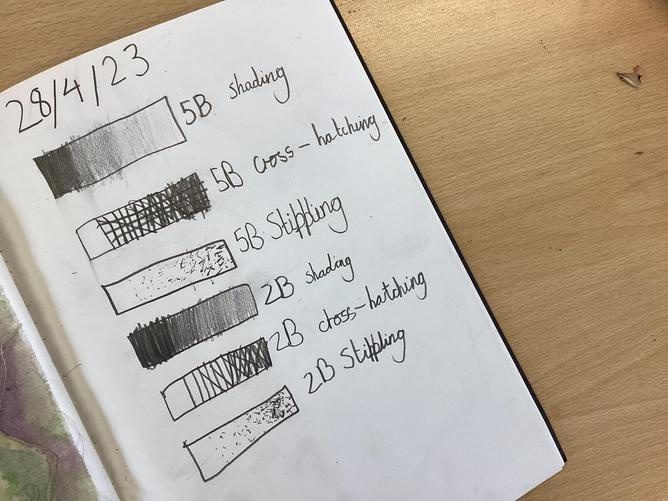 28/4/23
5B shading
5B cross-hatching
5B Stippling
2B shading
2B cross-hatching
2B Stippling